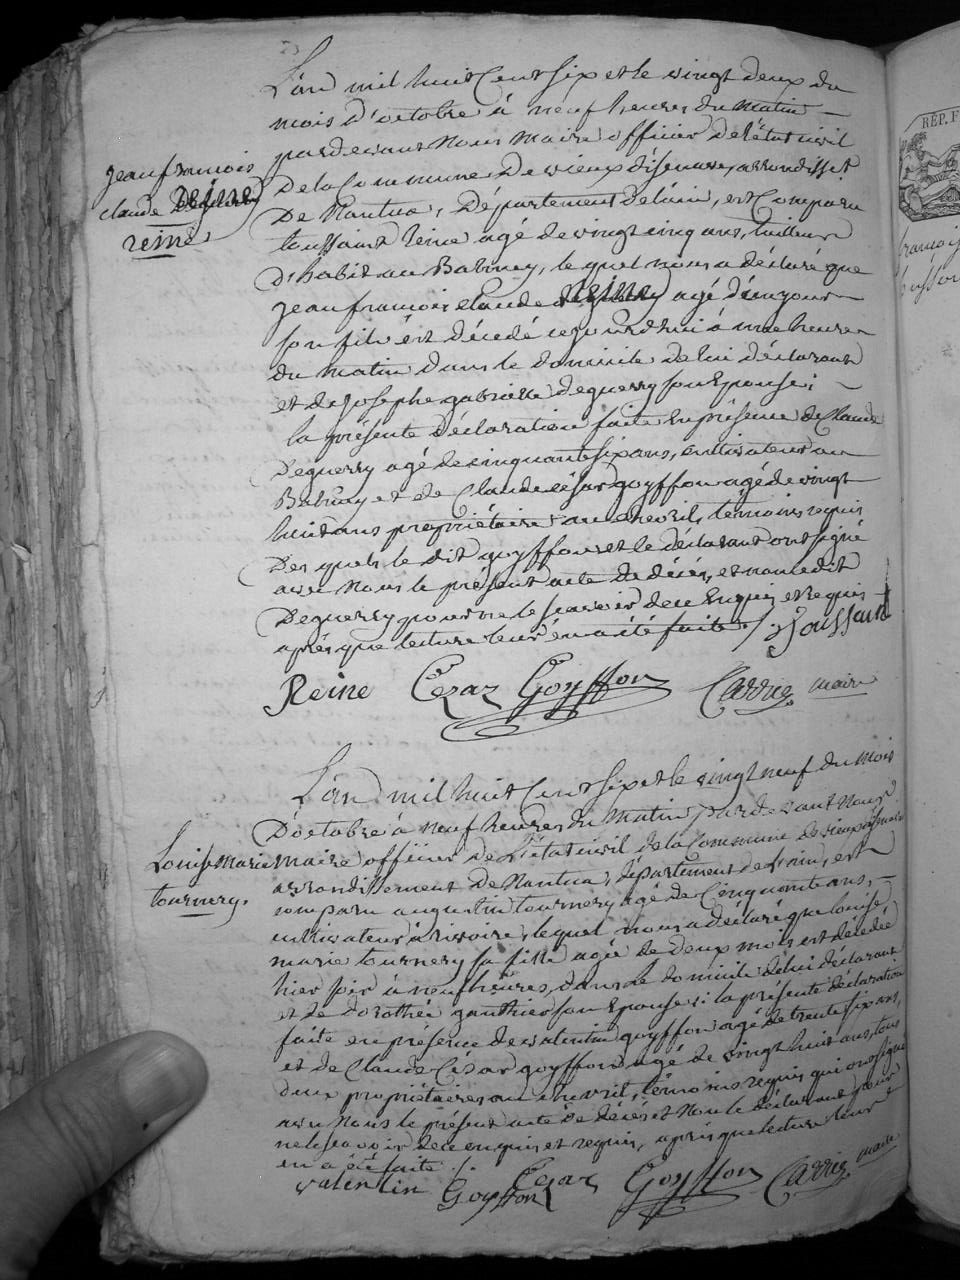 L'an mil huit Cent six et le vingt deux du
mois d'octobre à neuf heures du matin
pardevant nous maire officier de l'état civil
De la Commune De vieux d'isenave, arrondisst
De Nantua, Département de l'ain, est Comparu
toussaint reine agé de vingt cinq ans, tailleur
D'habit au Balvay, le quel nous a déclaré que
jean francois claude reine agé d'un jour
son fils est décédé cejourd'hui à une heure
du matin dans le domicile de lui déclarant
et de josephe gabrielle deguerry son Epouse;
la présente déclaration faite En présence de Claude
Deguerry agé de cinquante six ans, cultivateur au
Balvay et de Claude césar goyffon agé de vingt
huit ans propriétaire au chevril, témoins requis
Des quels le dit goyffon et le déclarant ont signé
avec nous le présent acte de décès, et non ledit
Deguerry pour ne le scavoir de ce Enquis et requis
après que lecture leur en a été faite ./. Toussaint
jean francois
claude
reine
Reine Cezar Goyffon Carrier maire
L'an mil huit Cent six et le vingt neuf du mois
D'octobre à neuf heures du matin par devant Nous
maire officier de L'état civil de la Commune de vieux d'isenave
arrondissement de Nantua, département de l'ain, est
comparu augustin tournery agé de Cinquante ans,
cultivateur à rivoire, lequel nous a déclaré que louise
marie tournery sa fille agée de deux mois est décédée
hier soir à neuf heures, dans le domicile de lui déclarant
et de dorothée gauthier son Epouse; la présente déclaration
faite en présence de valentin goyffon agé de trente six ans,
et de Claude César goyffon agé de vingt huit ans, tous
deux propriétaires au chevril, témoins requis qui ont signé
avec nous le présent acte de décès et non le déclarant pour
ne le scavoir de ce enquis et requis, après que lecture leur
en a été faite ./.
Louise Marie
tournery.
valentin Goyffon Cezar Goyffon Carrier maire
RÉP. F